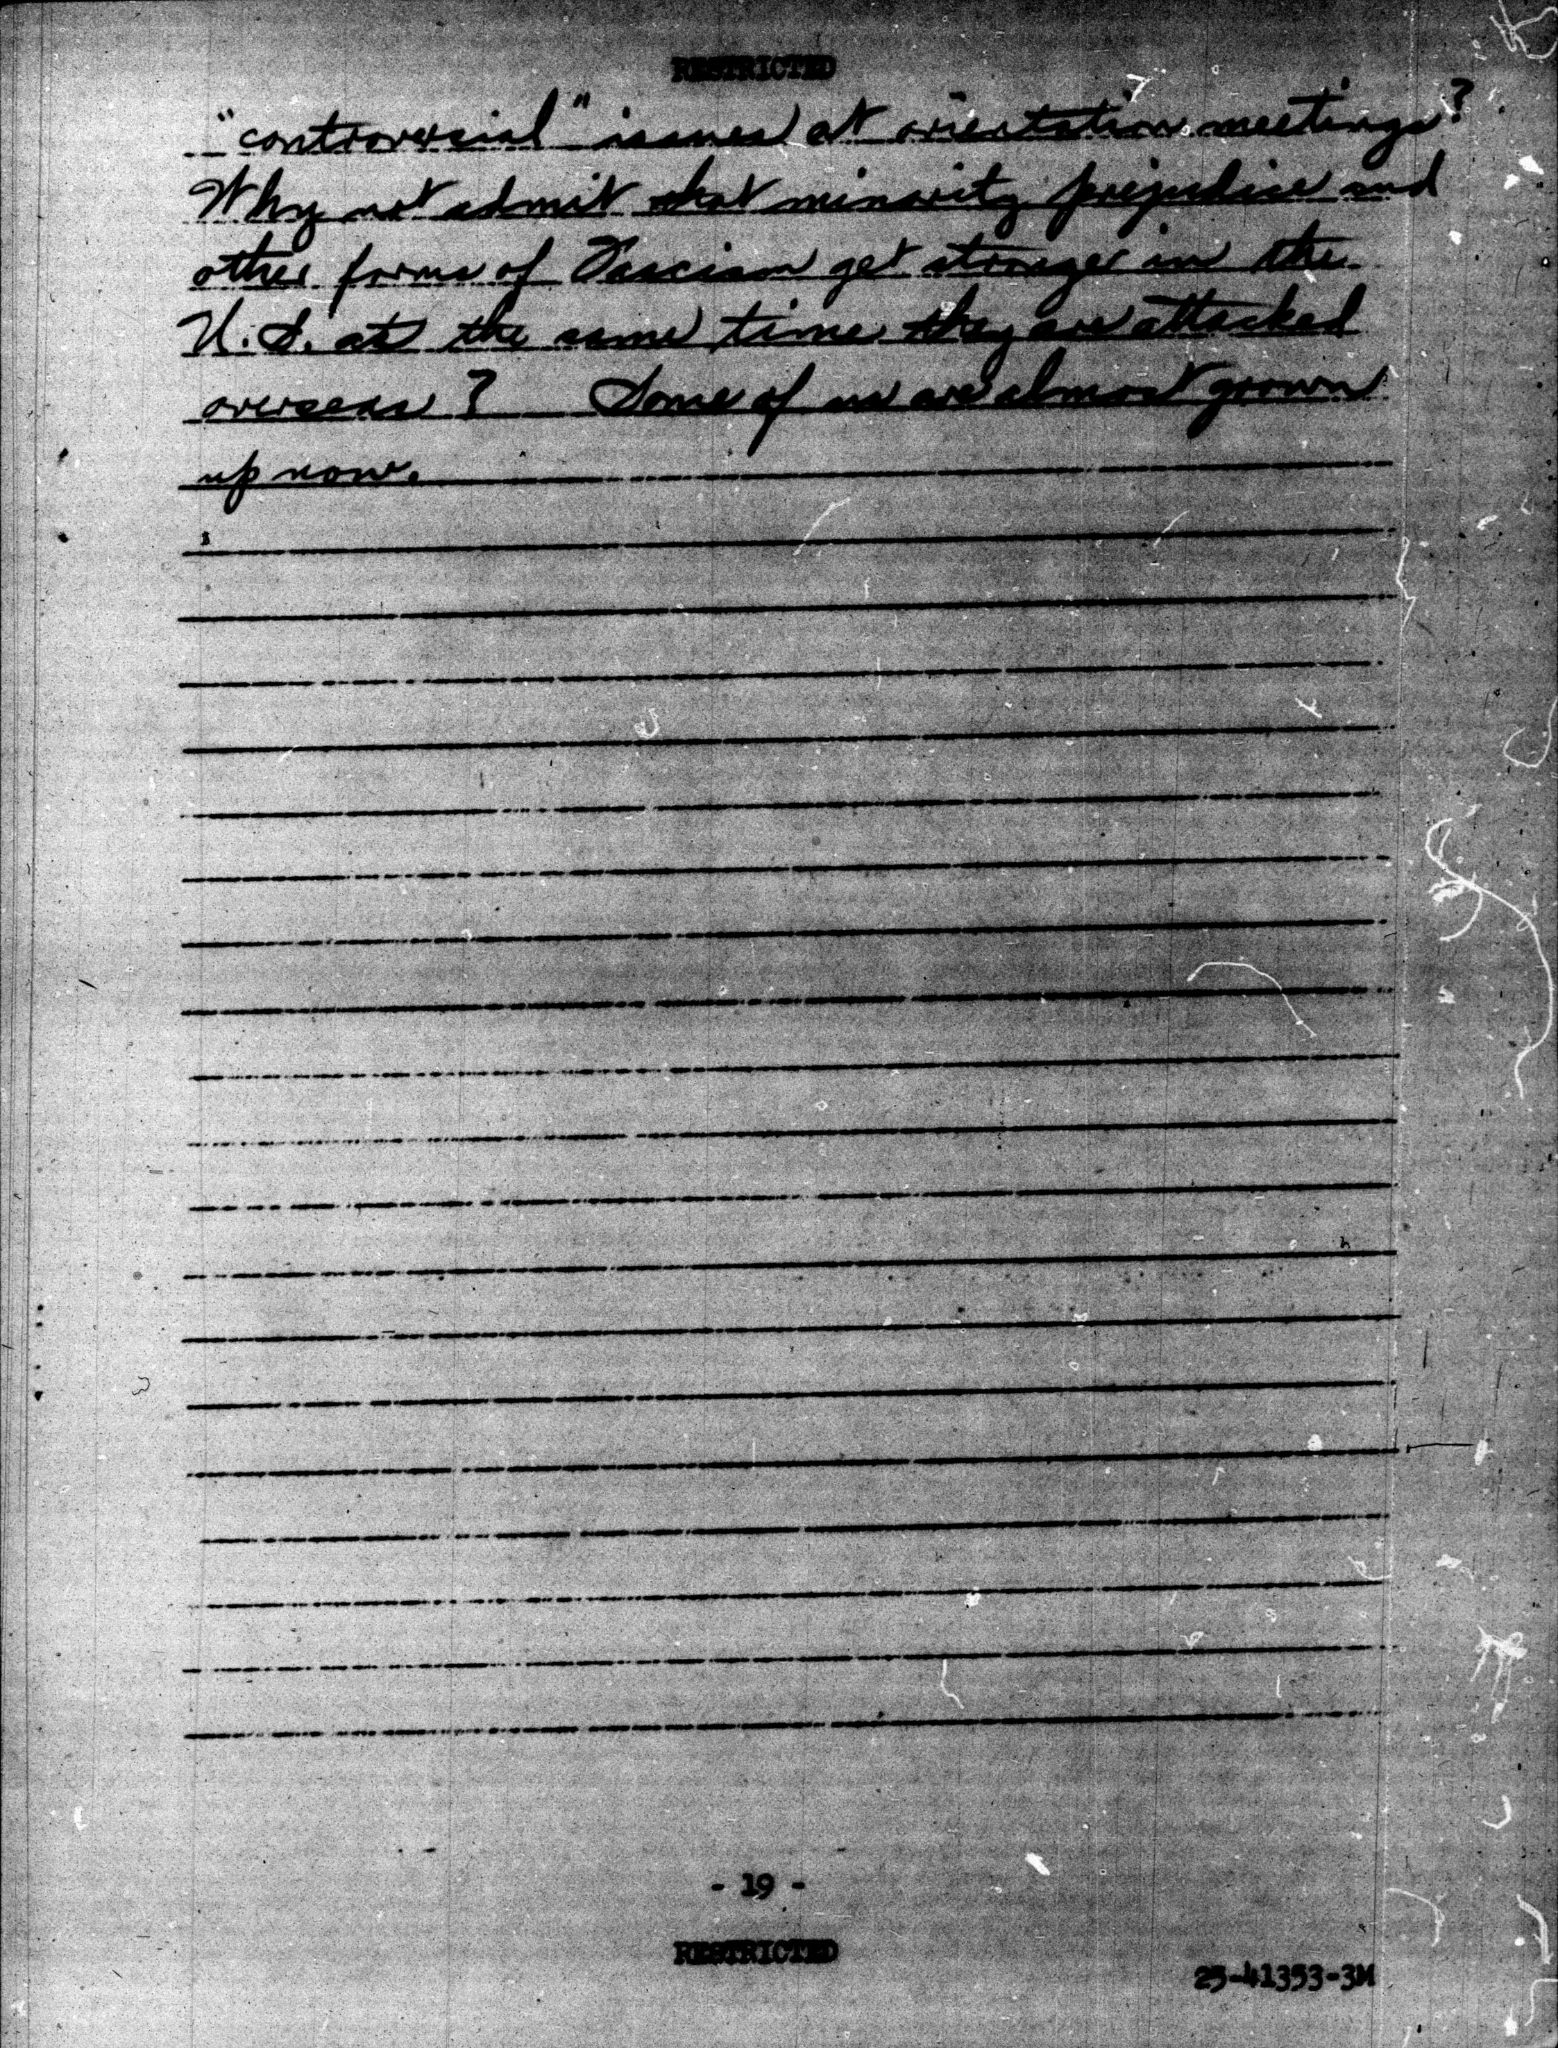 RESTRICTED
"controversial" issues at orientation meetings?
Why not admit that minority prejudice and
other forms of Fascism get stronger in the
U.S. at the same time they are attacked
overseas? Some of us are almost grown
up now.
- 19 -
RESTRICTED
25-41353-3M